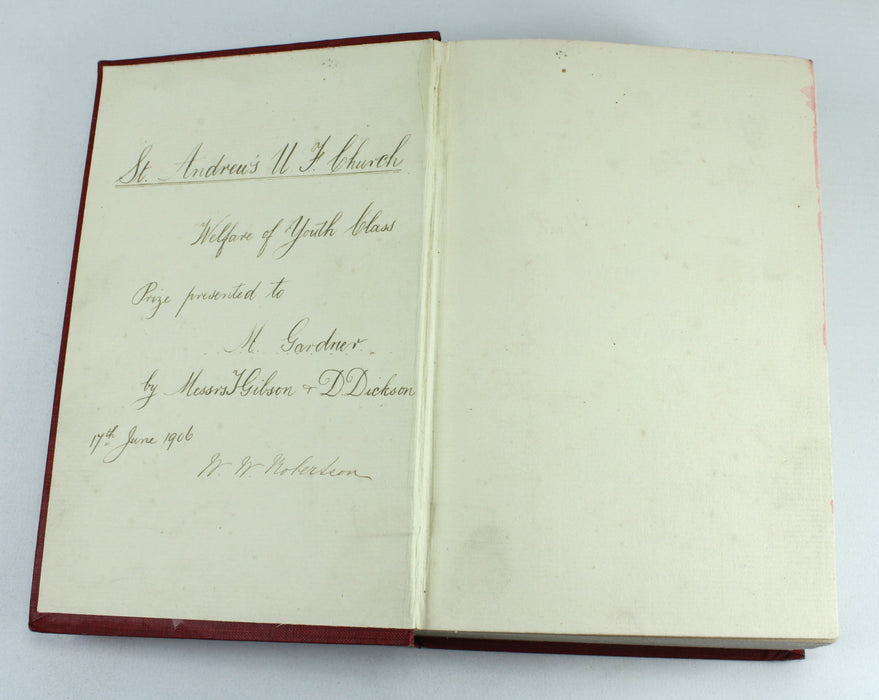 St. Andrew's U. F. Church
Welfare of Youth Class
Prize presented to
M. Gardner
by Messrs J Gibson & D Dickson
17th June 1906
W. W. Robertson